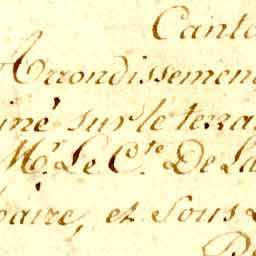 Canto
Arrondissemen
iné sur le terra
Mr. Le Cte. De La
paire, et sous